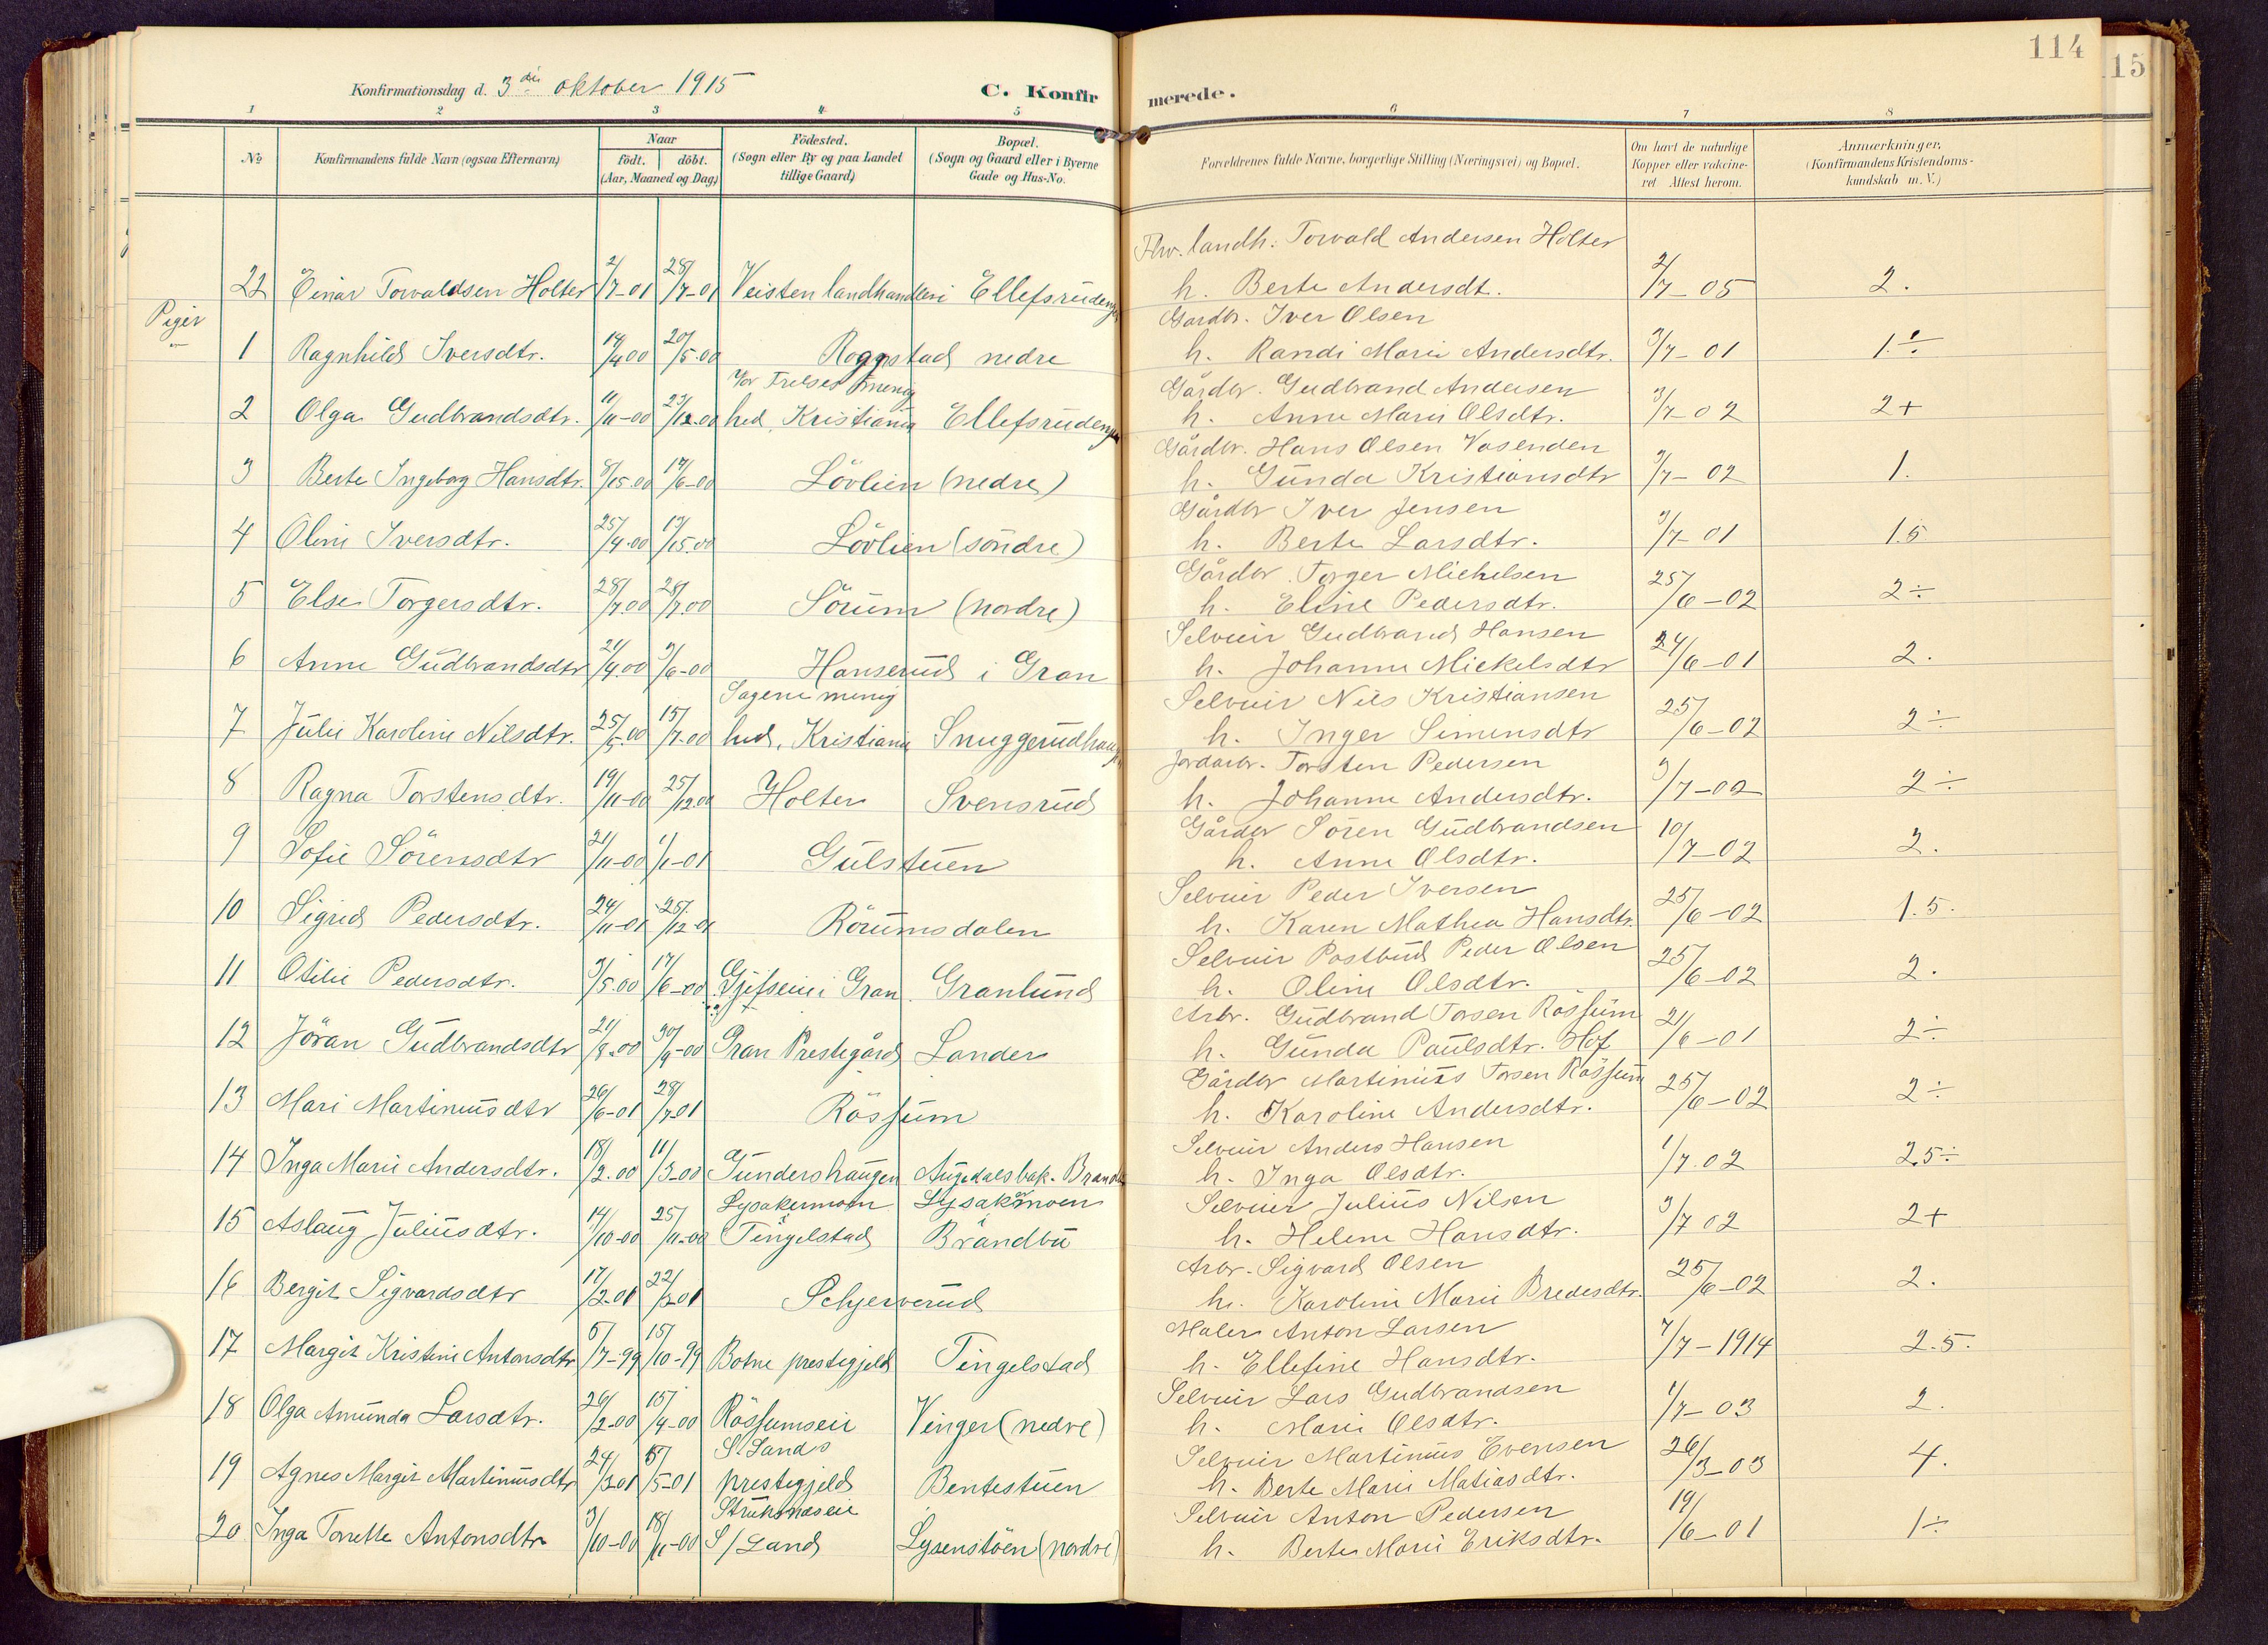 114
15
Konfirmationsdag d. 3die oktober 1915
C. Konfirmerede.
1 2 3 4 5 6 7 8
No
Konfirmandens fulde Navn (ogsaa Efternavn)
Naar
födt. döbt.
(Aar, Maaned og Dag)
Födested.
(Sogn eller By og paa Landet
tillige Gaard)
Bopæl.
(Sogn og Gaard eller i Byerne
Gade og Hus-No.
Forældrenes fulde Navne, borgerlige Stilling (Næringsvei) og Bopæl.
Om havt de naturlige
Kopper eller vakcine-
ret Attest herom.
Anmærkninger.
(Konfirmandens Kristendoms-
kundskab m. V.)
Fhv. landh. Torvald Andersen Holter
22 Einar Torvaldsen Holter 2/7-01 28/7-01 Veisten landhandleri Ellefsrudengen h. Berte Andersdt. 2/7-05 2.
Piger
Gardbr. Iver Olsen
1 Ragnhild Iversdtr. 19/4 00 20/5-00 Roggstad nedre h. Randi Marie Andersdtr. 3/7-01 1.÷
Vor Frelsers menig Gårdbr. Gudbrand Andersen
2 Olga Gudbrandsdtr. 11/11-00 23/12-00 hed, Kristiania Ellefsrudengen h. Anne Marie Olsdtr. 3/7-02 2+
Gårdbr. Hans Olsen Vasenden
3 Berte Ingeborg Hansdtr. 8/5.00 17/6-00 Lövlien (nedre) h. Gunda Kristiansdtr 3/7-02 1.
Gårdbr Iver Jensen
4 Oline Iversdtr. 25/4-00 19/5.00 Lövlien (söndre) h. Berte Larsdtr. 3/7-01 1.5
Gårdbr. Torger Michelsen
5 Else Torgersdtr. 28/7.00 28/7.00 Sörum (nordre) h. Eline Pedersdtr. 25/6-02 2÷
Selveier Gudbrand Hansen
6 Anne Gudbrandsdtr 21/4.00 3/6-00 Hanserud i Gran h. Johanne Mickelsdtr 24/6-01 2.
Sagene menig Selveier Nils Kristiansen
7 Julie Karoline Nilsdtr. 25/5-00 15/7-00 hed, Kristiania Snuggerudhaugen h. Inger Simensdtr 25/6-02 2÷
Jordarbr. Torsten Pedersen
8 Ragna Torstensdtr. 19/11-00 25/12.00 Holter Svensrud h. Johanne Andersdtr. 3/7-02 2÷
Gårdbr Sören Gudbrandsen
9 Sofie Sörensdtr 21/11-00 1/1-01 Gulstuen h. Anne Olsdtr. 10/7-02 2.
Selveier Peder Iversen
10 Sigrid Pedersdtr. 24/11-01 25/12-01 Rörumsdalen h. Karen Mathea Hansdtr. 25/6-02 1.5.
Selveier Postbud Peder Olsen
11 Otilie Pedersdtr. 3/5.00 17/6-00 Gjefseie i Gran Granlund h. Oline Olsdtr. 25/6-02 2.
Arbr. Gudbrand Torsen Rössum
12 Jöran Gudbrandsdtr 21/8-00 30/9-00 Gran Prestegård Lander h. Gunda Paulsdtr. Hof 21/6-01 2÷
Gårdbr Martinius Torsen Rössum
13 Mari Martinusdtr 26/6-01 28/7.01 Rössum h. Karoline Andersdtr. 25/6-02 2÷
Selveier Anders Hansen
14 Inga Marie Andersdtr. 18/2.00 11/3-00 Gundershaugen Augedalsbak. Brandbu h. Inga Olsdtr. 1/7.02 2.5÷
Lysakermoen Lysakmoen Selveier Julius Nilsen
15 Aslaug Juliusdtr. 14/10-00 25/11-00 Tingelstad Brandbu h. Helene Hansdtr. 3/7 02 2+
Arbr. Sigvard Olsen
16 Bergit Sigvardsdtr 17/2-01 22/3.01 Schjerverud h. Karoline Marie Bredesdtr. 25/6-02 2.
Maler Anton Larsen
17 Margit Kristine Antonsdtr 5/7-99 15/10-99 Botne prestegjeld Tingelstad h. Ellefine Hansdtr. 7/7-1914 2.5.
Selveier Lars Gudbrandsen
18 Olga Amunda Larsdtr. 26/2-00 15/4-00 Rössumseie Vinger (nedre) h. Marie Olsdtr. 1/7-03 2.
S. Lands Selveier Martinius Evensen
19 Agnes Margit Martinusdtr 24/3.01 5/5-01 prestegjeld Bentestuen h. Berte Marie Matiasdtr. 26/3-03 4.
Struksnæseie Selveier Anton Pedersen
20 Inga Torette Antonsdtr 3/10-00 18/11-00 S/Land Lysenstöen (nordre) h. Berte Marie Eriksdtr. 19/6-01 1÷